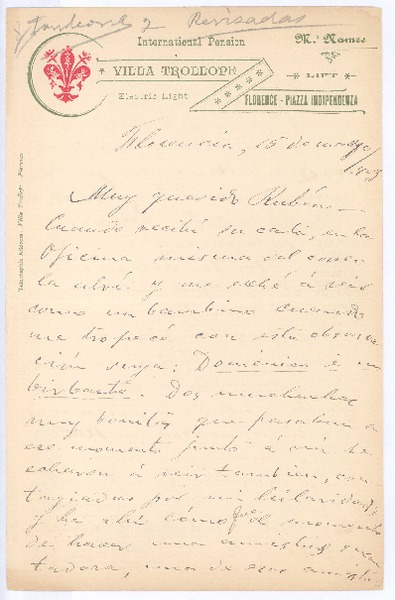 2 Revisadas
International Pension
VILLA TROLLOPE
Electric Light
M.ª Nomes
LIFT
FLORENCE - PIAZZA INDIPENDENZA
Telegraphic Address: Villa Trollope - Florence
Florencia, 15 de mayo/
Muy querido Rubén:
Cuando recibí su carta, en la
Oficina misma del correo
la abrí y me eché á reir
como un bambino cuando
me tropecé con esta observa-
ción suya: Doménico é un
birbante. Dos muchachas
muy bonitas que pasaban en
ese momento junto á mí se
echaron á reir tambien, con-
tagiadas por mi hilaridad,
y he ahí cómo fué el momento
de hacer una amistad encan-
tadora, una de esas amista